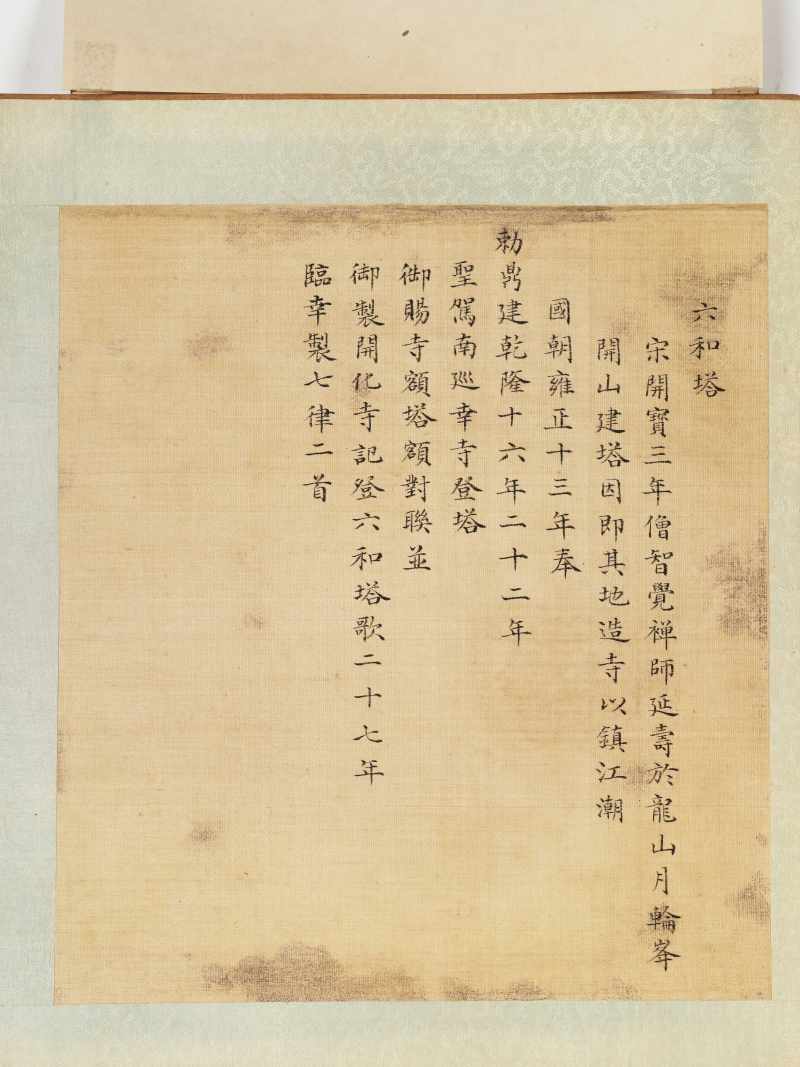 六和塔
宋開寶三年僧智覺禅師延壽於龍山月輪峯
開山建塔因即其地造寺以鎮江潮
國朝雍正十三年奉
勅鼎建乾隆十六年二十二年
聖駕南廵幸寺登塔
御賜寺額塔額對聯並
御製開化寺記登六和塔歌二十七年
臨幸製七律二首